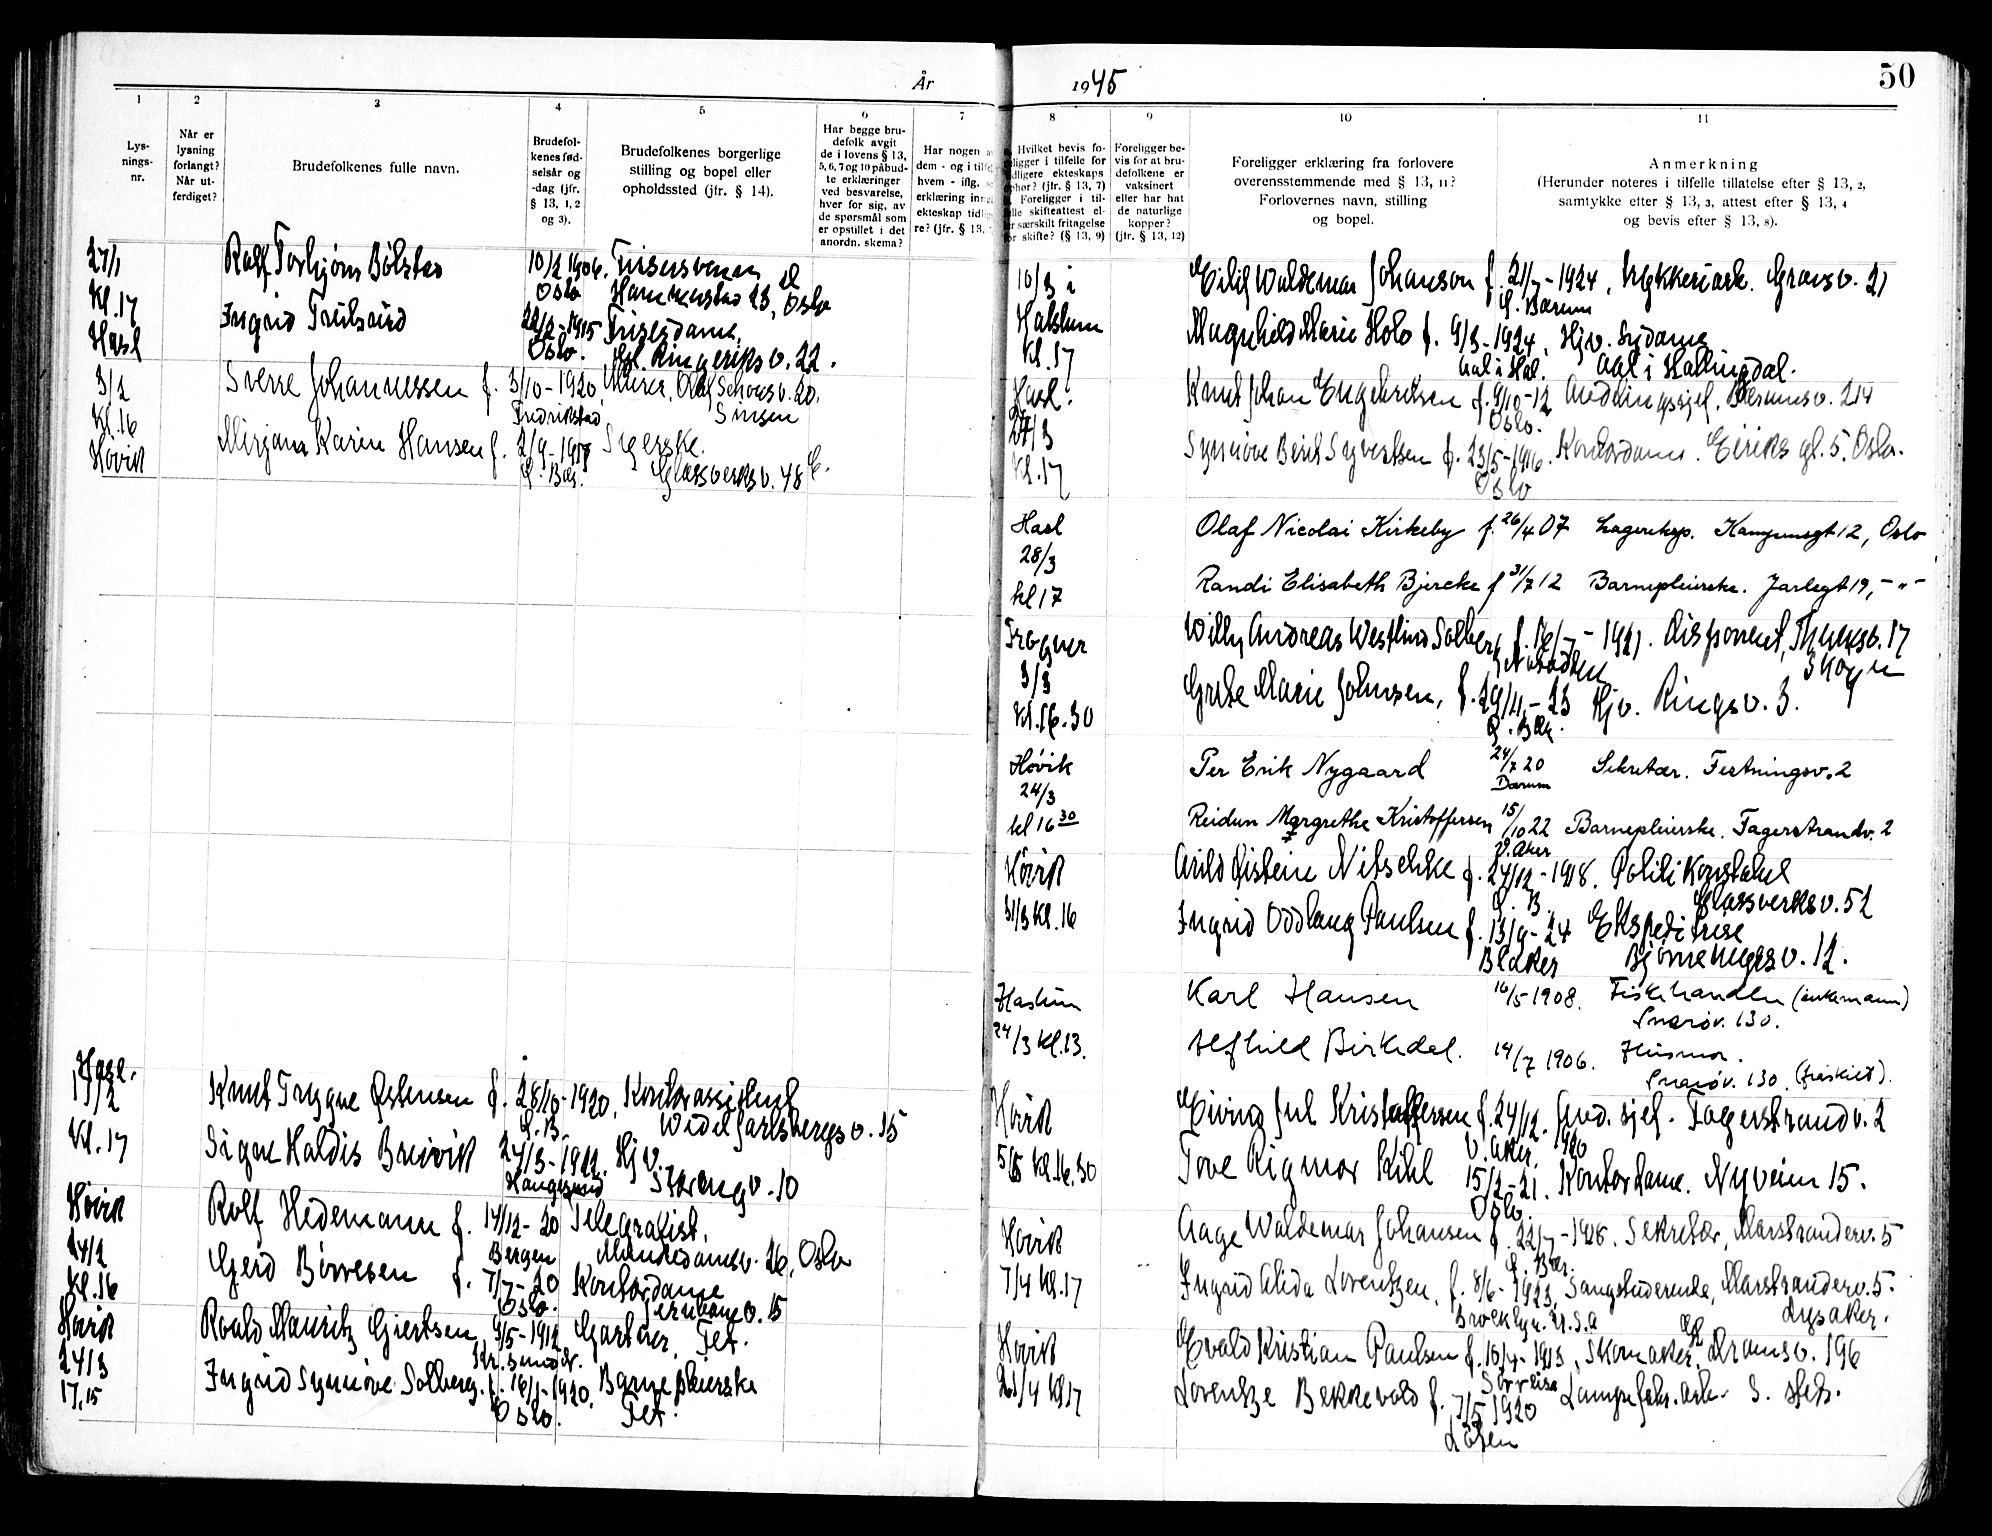 År
1945
50
1
2
3
4
5
6
7
8
9
10
11
Lys-
nings-
nr.
Når er
lysning
forlangt?
Når ut-
ferdiget?
Brudefolkenes fulle navn.
Brudefol-
kenes fød-
selsår og
-dag (jfr.
§ 13, 1, 2
og 3).
Brudefolkenes borgerlige
stilling og bopel eller
opholdssted (jfr. § 14).
Har begge bru-
defolk avgit
de i lovens § 13,
5, 6, 7 og 10 påbud-
te erklæringer
ved besvarelse,
hver for sig, av
de spørsmål som
er opstillet i det
anordn. skema?
Har nogen
dem - og i
hvem - iflg.
erklæring
ekteskap
re? (jfr. § 13,
Hvilket bevis fo-
religger i tilfelle for
ekteskaps
(jfr. § 13, 7)
Foreligger i til-
skifteattest el-
særskilt fritagelse
skifte? (§ 13, 9)
Foreligger be-
vis for at bru-
defolkene er
vaksinert
eller har hat
de naturlige
kopper?
(jfr. § 13, 12)
Foreligger erklæring fra forlovere
overensstemmende med § 13, 11?
Forlovernes navn, stilling
og bopel.
Anmerkning
(Herunder noteres i tilfelle tillatelse efter § 13, 2,
samtykke efter § 13, 3, attest efter § 13, 4
og bevis efter § 13, 8).
27/1 Rolf Torbjørn Bølstad 10/2 1906.
Kl. 17 Oslo 23, Oslo
Ingrid 22/2-1915
Hasl Oslo. Ringeriksv. 22.
3/2 Sverre Johannessen f. 3/10-1920, Murer, Olaf Schous v. 20.
Kl. 16 Fredrikstad Sinsen
Høvik Mirjam Karin Hansen f. 2/9-191
Ø. Bær. Glassverksv. 48
Hasl.
17/2 Knut Trygve Østensen f. 28/10-1920, Kontorassistent
Ø. B. Wedel Jarlsbergs v. 15
Kl. 17 Signe Haldis Breivik 24/3-1922. Hjv.
Haugesund Storengv. 10
Høvik Rolf Hedemann f. 14/12-20 Telegrafist.
24/2 Bergen Munkedamsv. 26, Oslo
Kl. 16 Gerd Børresen f. 7/7-20 Kontordame
Oslo. Jernbanev. 15
Høvik Roald Mauritz Giertsen, 9/5-1912 Gartner, Tet.
24/3 Kr.sund
17,15 Ingrid Synnøve Solberg. f. 16/1-1920, Barnepleierske
Oslo. Tet.
10/3 i Eilif Waldemar Johanson f. 21/7-1924, Gransv. 21
Haslum Ø. Bærum
Kl. 17 Magnhild Marie Holo f. 9/3-1924, Hjv. Sydame
Aal i Hal. Aal i Hallingdal.
Hasl. Knut Johan Engebretsen f. 9/10-12 Avdelingssjef. Bærumsv. 214
Oslo.
27/3
Kl. 17 Synnøve Berit Syvertsen f. 23/5-1916. Kontordame. Eiriks gt. 5, Oslo.
Oslo
Hasl Olaf Nicolai Kirkeby f. 26/4 07 Lagereksp. Kampensgt 12, Oslo
28/3
kl 17 Randi Elisabeth Bjercke f 31/7 12 Barnepleierske. Jarlegt 19, - " -
Frogner Willy Andreas Westlind Solberg f. 16/7-1921. Disponent, Thunesv. 17
3/3 Notodden Skøyen
Kl. 16.30 Grete Marie Johnsen, f. 29/11-23 Hjv. Ringsv. 3.
Ø. Bær.
Høvik Per Erik Nygaard 24/7 20 Sekretær. Festningsv. 2
24/3 Bærum
kl 16 30 Reidun Margrethe Kristoffersen 15/10 22 Barnepleierske. Fagerstrandv. 2
V. Aker
Høvik Arild Øistein Nitschke f. 24/12-1918. Politikonstabel
Ø. B. Glassverksv. 52
31/3 Kl. 16 Ingrid Oddlaug Paulsen f. 13/9-24 Ekspeditrise
Blaker v. 12.
Haslum Karl Hansen 16/5-1908. Fiskehandler (enkemann)
Snarøv. 130.
24/3 Kl. 13. Alfhild Birkedal. 14/7 1906. Husmor.
Snarøv. 130. (fraskilt).
Høvik Eivind Jul Kristoffersen f. 24/12. Avd. sjef. Fagerstrandv. 2
V. Aker. 1920
Kl. 16.30 Tove Rigmor Kihl 15/2-21. Kontordame. Nyveien 15.
Oslo.
Høvik Aage Waldemar Johansen f. 22/7-1918. Sekretær, Marstranderv. 5
Ø. Bær.
7/4 Kl. 17 Ingrid Alida Lorentzen, f. 8/6-1923, Sangstuderende, Marstranderv. 5.
Brooklyn. U.S.A Lysaker.
Høvik Evald Kristian Paulsen f. 10/4-1913, Skomaker, Dramsv. 196
21/4 Kl 17 Lorentze Bekkevold f. 7/5 1920 Lampefabr. arb. S. steds.